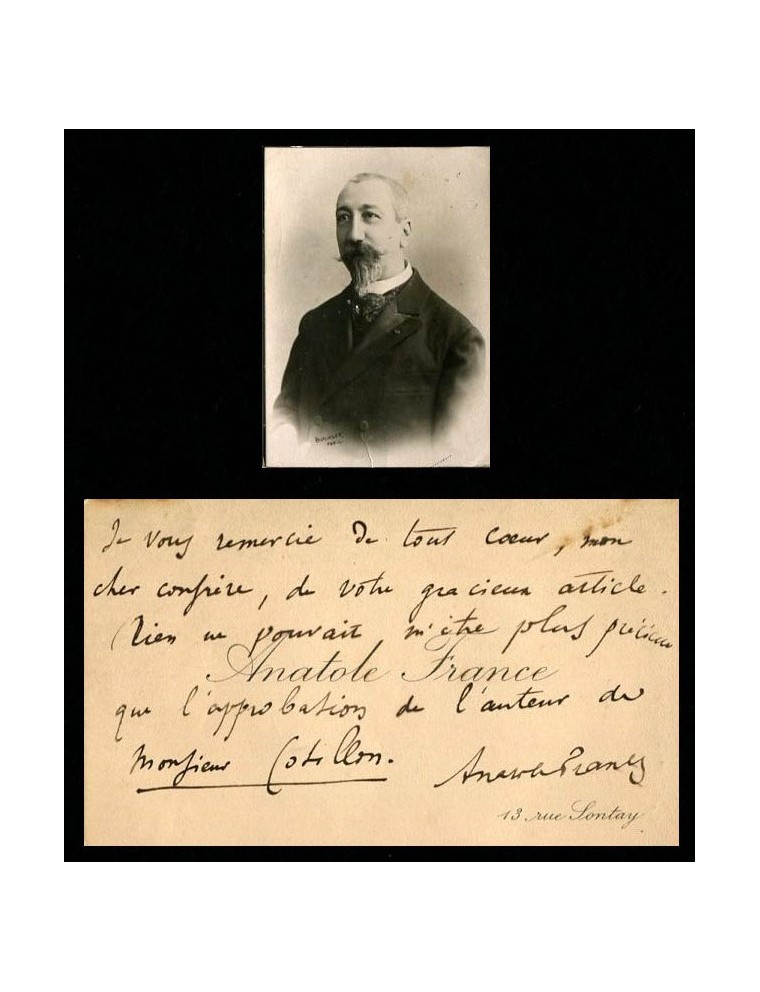 Je vous remercie de tout cœur, mon
cher confrère, de votre gracieux article.
Rien ne pouvait m'être plus précieux
Anatole France
que l'approbation de l'auteur de
Monsieur Cotillon.
Anatole France
13 rue Lontay